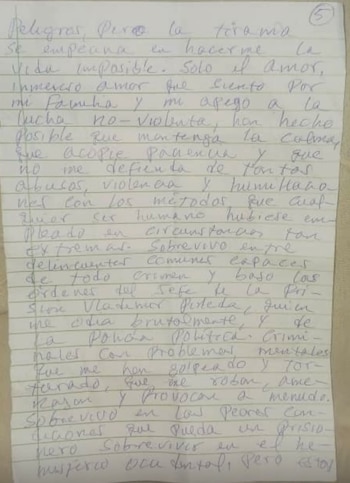 5
peligros, pero la tiranía
se empeña en hacerme la
vida imposible. Solo el amor,
inmenso amor que siento por
mi familia y mi apego a la
lucha no-violenta, han hecho
posible que mantenga la calma,
que acopie paciencia y que
no me defienda de tantos
abusos, violencia y humillacio
nes con los métodos, que cual
quier ser humano hubiese em
pleado en circunstancias tan
extremas. Sobrevivo entre
delincuentes comunes capaces
de todo crimen y bajo las
órdenes del Jefe de la Pri
sión Vladimir, quien
me odia brutalmente, y de
la Policía Política. Crimi
nales con problemas mentales
que me han golpeado y tor
turado, que me roban, ame
nazan y provocan a menudo.
Sobrevivo en las peores con
diciones que pueda un prisio
nero sobrevivir en el he
misferio occidental, pero